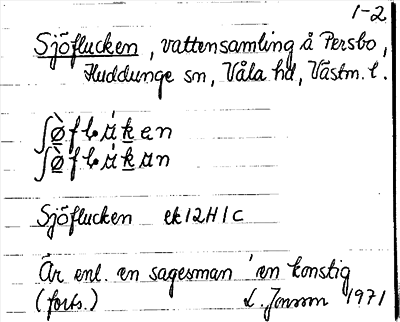 1-2
Sjöflucken, vattensamling å Persbo,
Huddunge sn, Våla hd, Västm. l.
Sjöflucken ek 12H1c
Är enl. en sagesman 'en konstig
(forts.) L. Jonsson 1971